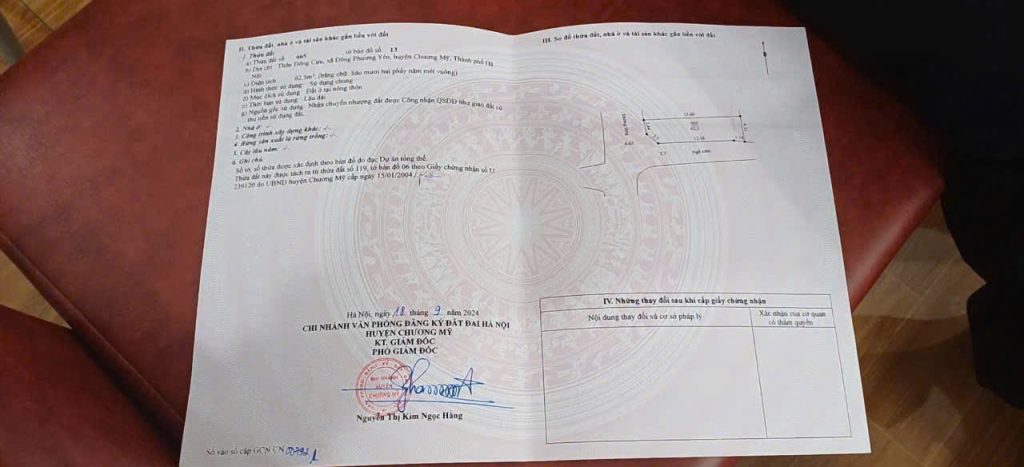 II. Thửa đất, nhà ở và tài sản khác gắn liền với đất
1. Thửa đất
a) Thửa đất số: 665 , tờ bản đồ số: 13
b) Địa chỉ: Thôn Đồng Cựu, xã Đông Phương Yên, huyện Chương Mỹ, Thành phố Hà
Nội
c) Diện tích: 62,3m², (bằng chữ: Sáu mươi hai phẩy năm mét vuông)
d) Hình thức sử dụng: Sử dụng chung
đ) Mục đích sử dụng: Đất ở tại nông thôn
e) Thời hạn sử dụng: Lâu dài
g) Nguồn gốc sử dụng: Nhận chuyển nhượng đất được Công nhận QSDĐ như giao đất có
thu tiền sử dụng đất.
2. Nhà ở: -/-
3. Công trình xây dựng khác: -/-
4. Rừng sản xuất là rừng trồng: -/-
5. Cây lâu năm: -/-
6. Ghi chú
Số tờ, số thửa được xác định theo bản đồ đo đạc Dự án tổng thể.
Thửa đất này được tách ra từ thửa đất số 119, tờ bản đồ 06 theo Giấy chứng nhận số
239120 do UBND huyện Chương Mỹ cấp ngày 15/01/2004
Hà Nội, ngày 18 tháng 9 năm 2024
CHI NHÁNH VĂN PHÒNG ĐĂNG KÝ ĐẤT ĐAI HÀ NỘI
HUYỆN CHƯƠNG MỸ
KT. GIÁM ĐỐC
PHÓ GIÁM ĐỐC
CHI NHÁNH
HUYỆN
CHƯƠNG MỸ
Nguyễn Thị Kim Ngọc Hằng
Số vào sổ cấp GCN:CN
III. Sơ đồ thửa đất, nhà ở và tài sản khác gắn liền với đất
665
IV. Những thay đổi sau khi cấp giấy chứng nhận
Nội dung thay đổi và cơ sở pháp lý
Xác nhận của cơ quan
có thẩm quyền